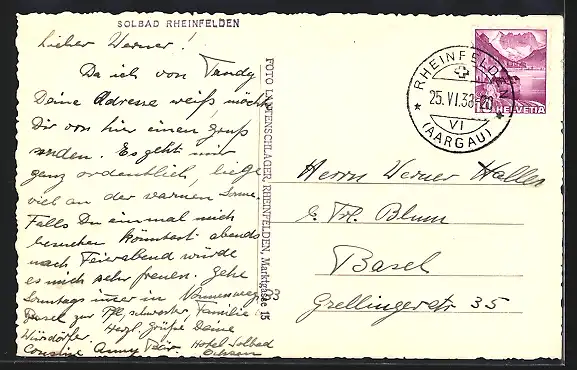 SOLBAD RHEINFELDEN
Lieber Werner!
Da ich von Trudy
Deine Adresse weiß, möcht
Dir von hier einen gruß
senden. Es geht mir
ganz ordentlich, liege
viel an der warmen Sonne.
Falls Du einmal mich
besuchen könntest abends
nach Feierabend würde
es mich sehr freuen. Gehe
Sonntags immer in
Basel zur
Herzl. Grüße Deine
Cousine Anny
Hotel Solbad
Ochsen
FOTO LAUTENSCHLAGER, RHEINFELDEN, Marktgasse 15
RHEINFELDEN
25.VI.38-20
VI
(AARGAU)
HELVETIA
Herrn Werner Haller
b. Frl. Blum
Basel
Grellingerstr 35